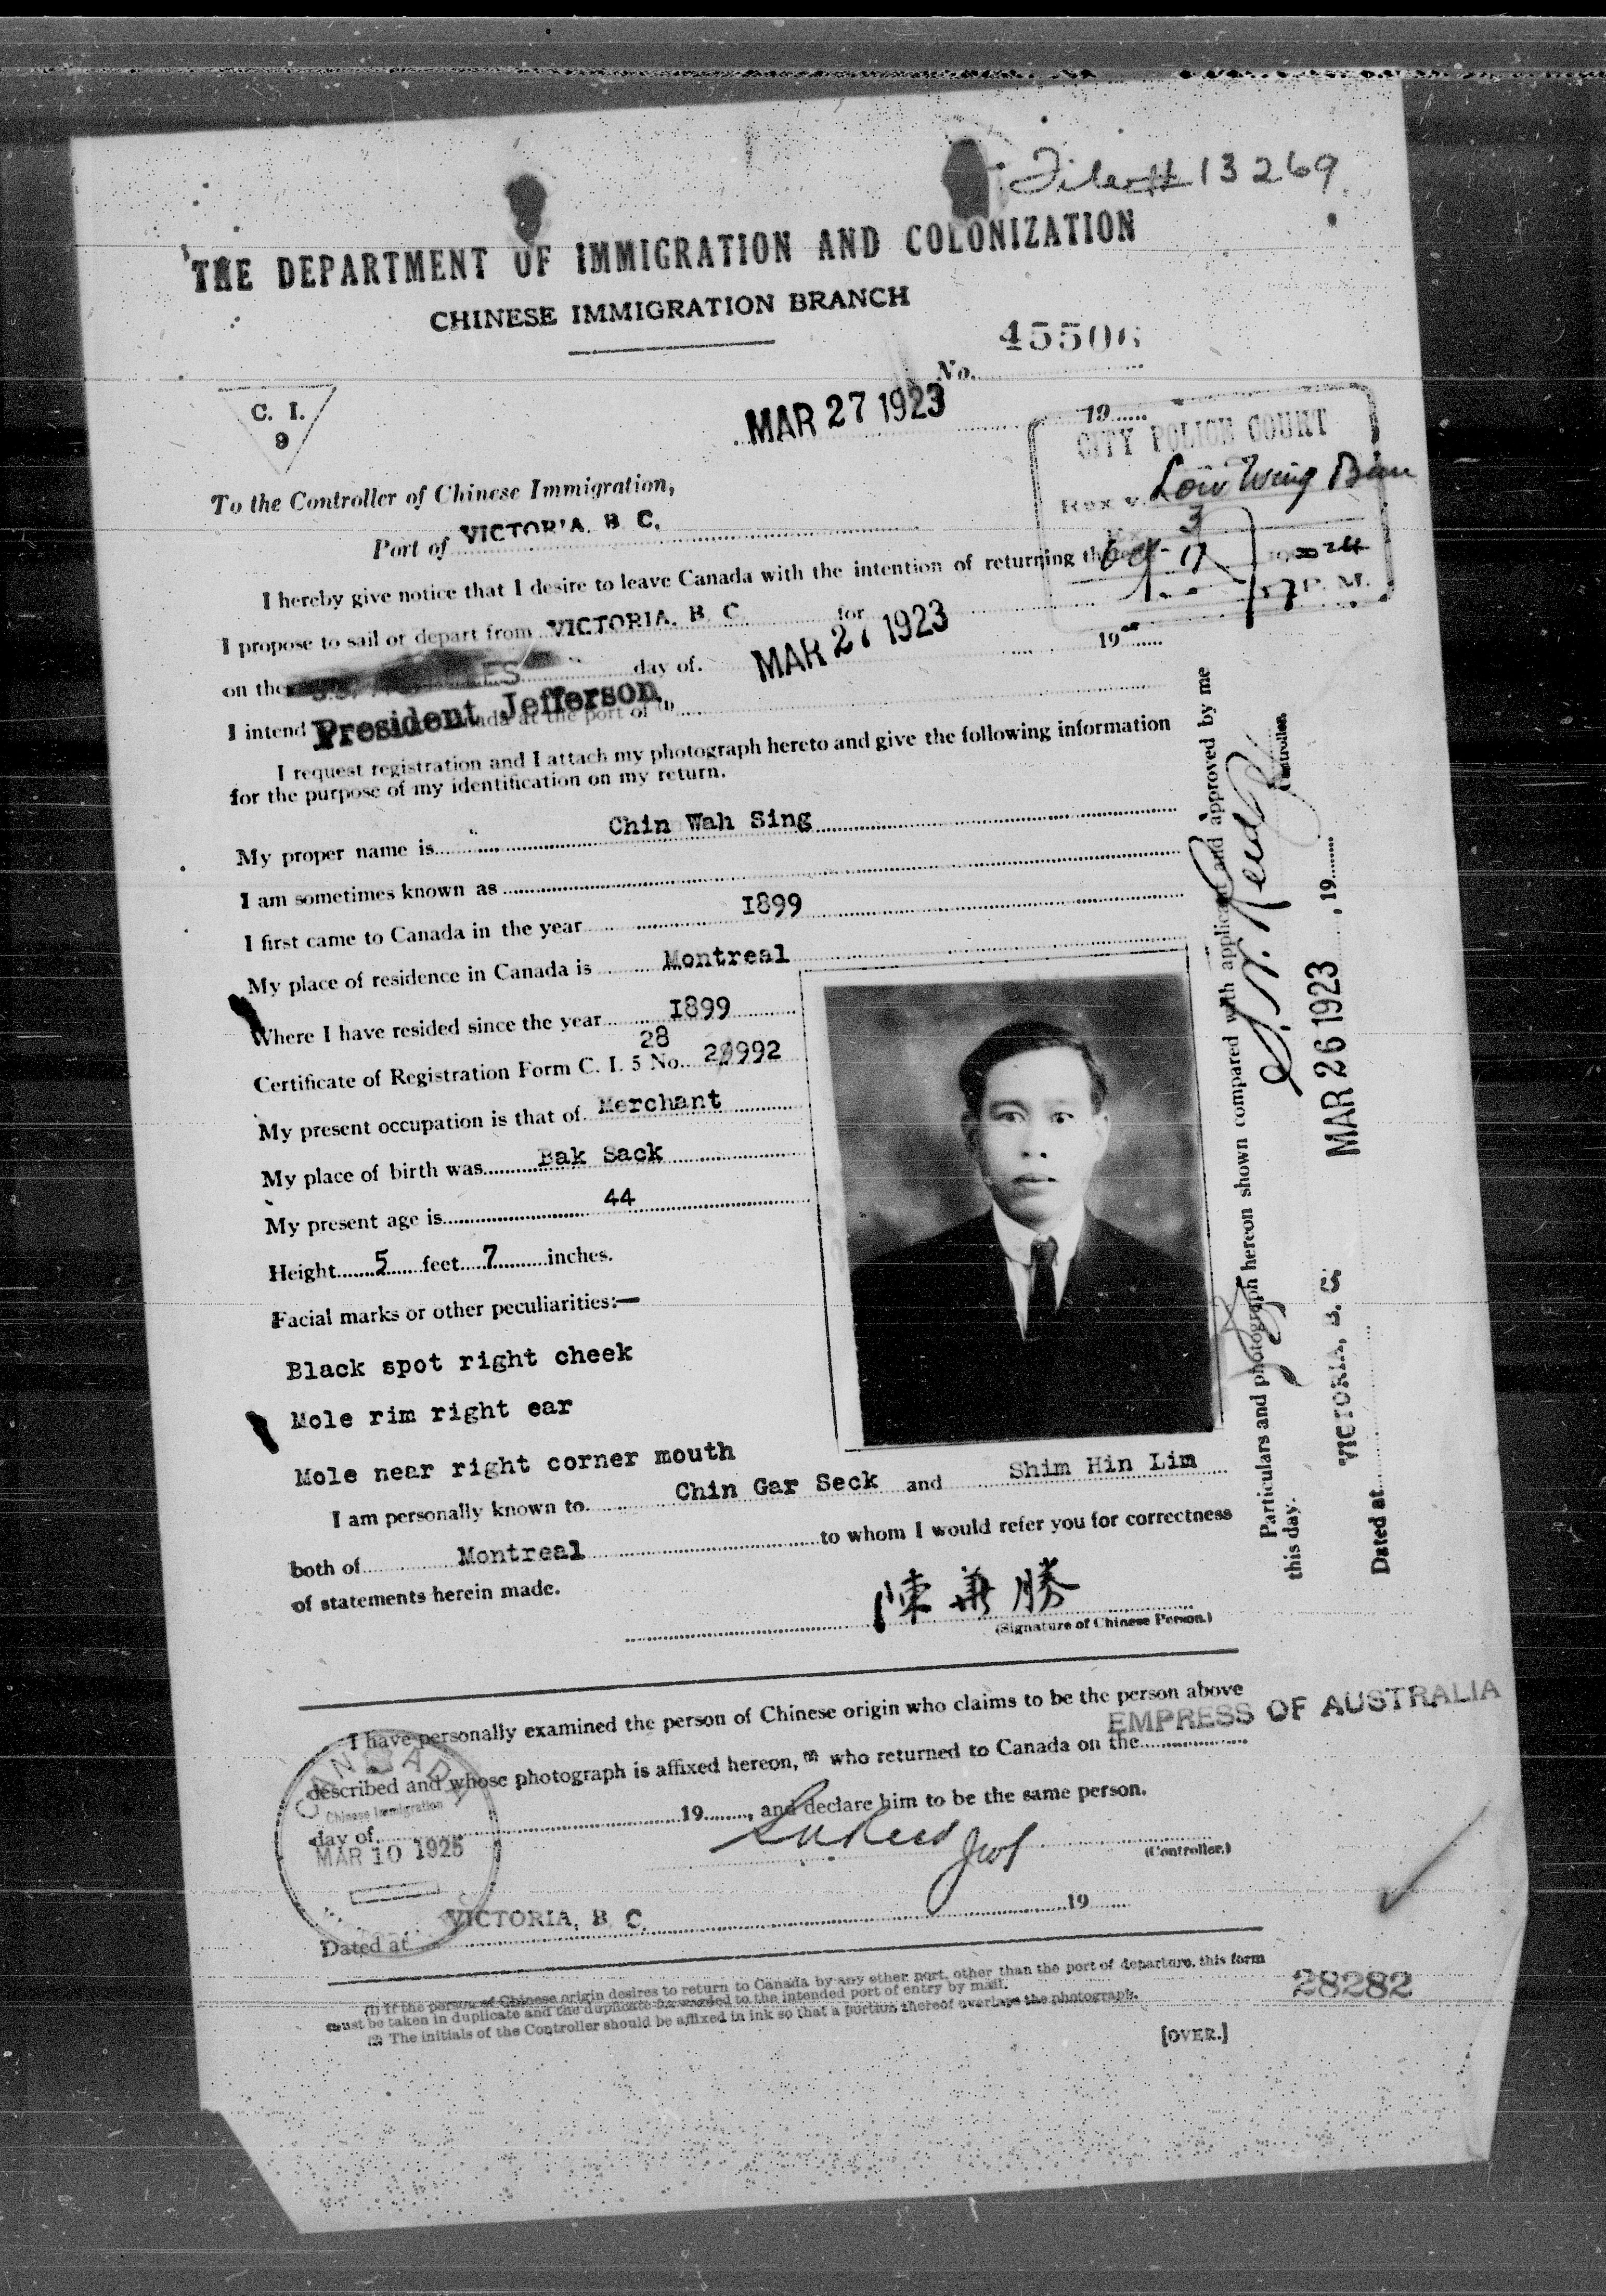 File # 13269
THE DEPARTMENT OF IMMIGRATION AND COLONIZATION
CHINESE IMMIGRATION BRANCH
No. 45506
C. I.
9
MAR 27 1923
19......
CITY POLICE COURT
Rex v. Low Wing
3
17
1924
P. M.
To the Controller of Chinese Immigration,
Port of VICTORIA. B. C.
I hereby give notice that I desire to leave Canada with the intention of returning
I propose to sail or depart from VICTORIA, B. C. for
on the day of. MAR 27 1923 19......
President Jefferson
I intend at the port of (1)
I request registration and I attach my photograph hereto and give the following information
for the purpose of my identification on my return.
My proper name is Chin Wah Sing
I am sometimes known as
I first came to Canada in the year 1899
My place of residence in Canada is Montreal
Where I have resided since the year 1899
28
Certificate of Registration Form C. I. 5 No. 992
My present occupation is that of Merchant
My place of birth was Bak Sack
My present age is 44
Height 5 feet 7 inches.
Facial marks or other peculiarities:—
Black spot right cheek
Mole rim right ear
Mole near right corner mouth
I am personally known to Chin Gar Seck and Shim Hin Lim
both of Montreal to whom I would refer you for correctness
of statements herein made.
陳華勝
(Signature of Chinese Person.)
Particulars and photograph hereon shown compared with applicant and approved by me
this day.
Controller.
Dated at VICTORIA, B. C. MAR 26 1923, 19......
I have personally examined the person of Chinese origin who claims to be the person above
EMPRESS OF AUSTRALIA
described and whose photograph is affixed hereon, (2) who returned to Canada on the
day of 19......, and declare him to be the same person.
CANADA
Chinese Immigration
MAR 10 1925
(Controller.)
Dated at VICTORIA, B. C. 19......
(1) If the person of Chinese origin desires to return to Canada by any other port, other than the port of departure, this form
must be taken in duplicate and the duplicate forwarded to the intended port of entry by mail.
(2) The initials of the Controller should be affixed in ink so that a portion thereof overlaps the photograph.
28282
[OVER.]